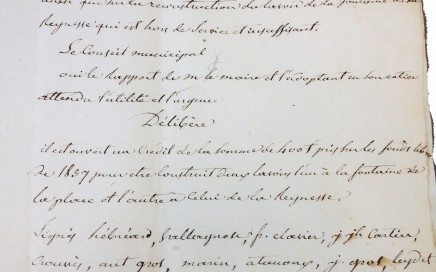 ainsi que sur la reconstruction du lavoir de la fontaine de la
Reynesse qui est hors de service et insuffisant.
Le Conseil municipal
oui le rapport de m le maire et l'adoptant en son entier
attendu l'utilité et l'urgence
Délibère
il est ouvert un Crédit de la somme de 400f pris sur les fonds libres
de 1857 pour être construit deux lavoirs l'un à la fontaine de
la place et l'autre à celui de la Reynesse.
Signés hébréard, fr. clavier, j. jh Cartier,
ant grot, marin, j. grot,